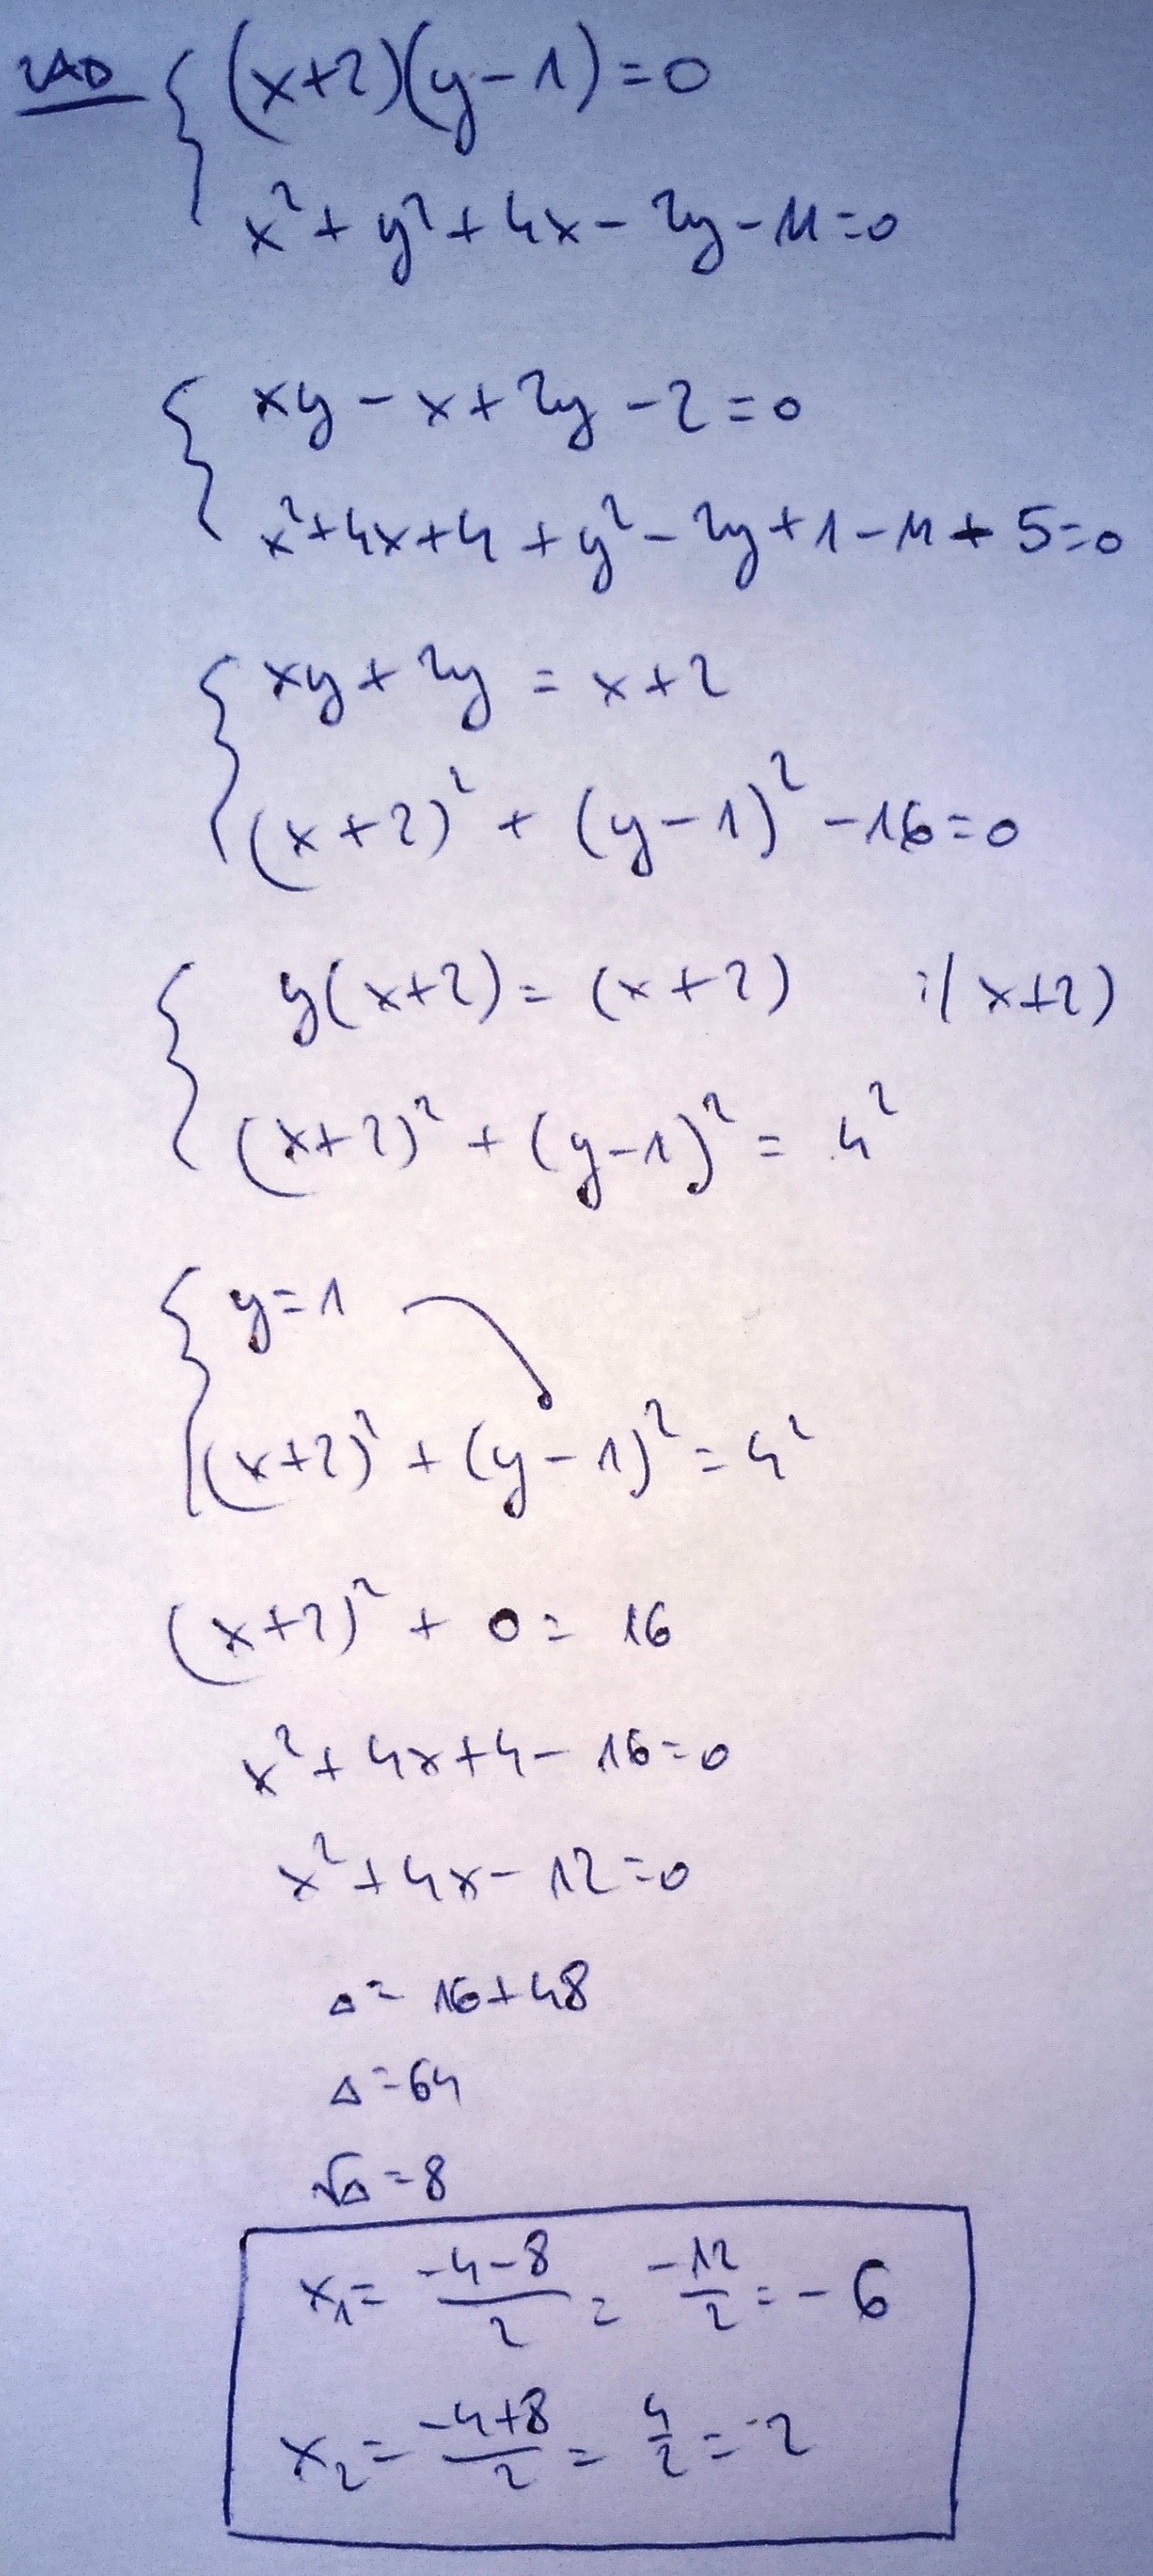 ZAD { (x+2)(y-1)=0
x²+y²+4x-2y-11=0
{ xy-x+2y-2=0
x²+4x+4+y²-2y+1-11+5=0
{ xy+2y=x+2
(x+2)²+(y-1)²-16=0
{ y(x+2)=(x+2) :/(x+2)
(x+2)²+(y-1)²=4²
{ y=1
(x+2)²+(y-1)²=4²
(x+2)²+0=16
x²+4x+4-16=0
x²+4x-12=0
Δ=16+48
Δ=64
√Δ=8
x₁=\frac{-4-8}{2}=\frac{-12}{2}=-6
x₂=\frac{-4+8}{2}=\frac{4}{2}=2